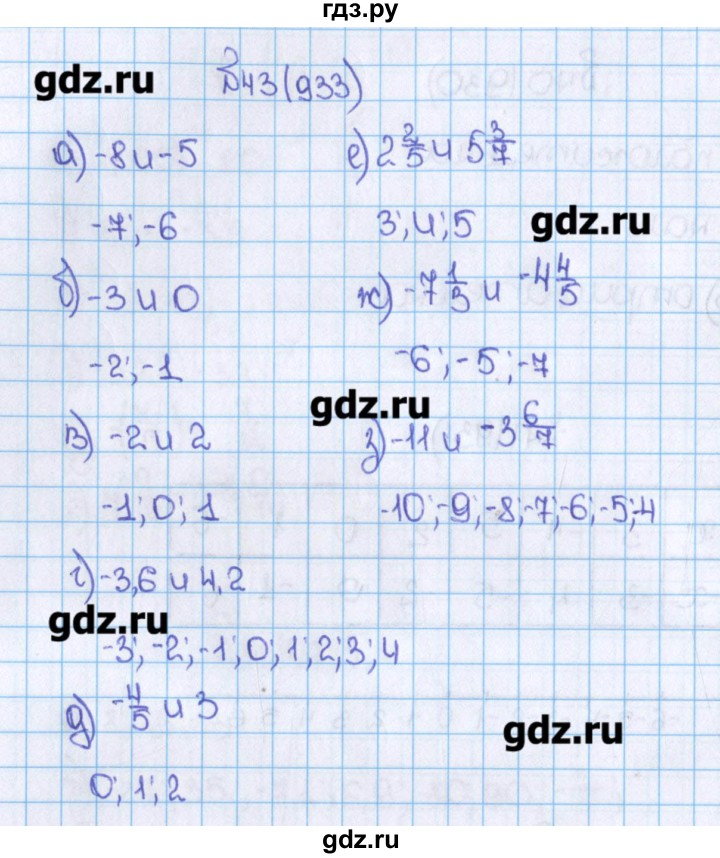 гдз.ру
gdz.ru
843(933)
а) -8 и -5
-7; -6
б) -3 и 0
-2; -1
в) -2 и 2
-1; 0; 1
г) -3,6 и 4,2
gdz.ru
-3; -2; -1; 0; 1; 2; 3; 4
д) -4/5 и 3
0; 1; 2
е) 2 2/5 и 5 3/7
3; 4; 5
gdz.ru
ж) -7 1/3 и -4 4/5
-6; -5; -7
gdz.ru
з) -11 и -3 6/7
-10; -9; -8; -7; -6; -5; -4
gdz.ru
gdz.ru